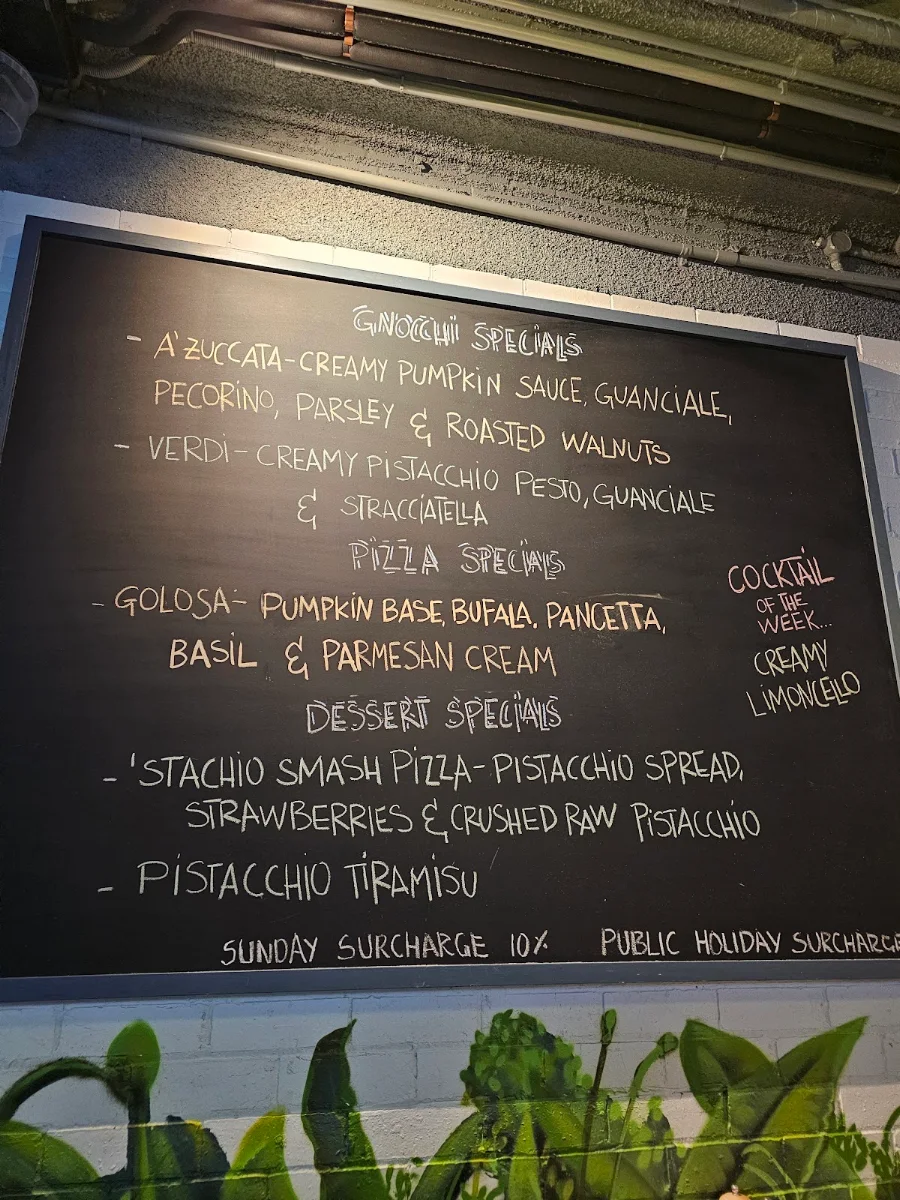 GNOCCHI SPECIALS
- A'ZUCCATA - CREAMY PUMPKIN SAUCE, GUANCIALE,
PECORINO, PARSLEY & ROASTED WALNUTS
- VERDI - CREAMY PISTACCHIO PESTO, GUANCIALE
& STRACCIATELLA
PIZZA SPECIALS
- GOLOSA - PUMPKIN BASE, BUFALA, PANCETTA,
BASIL & PARMESAN CREAM
COCKTAIL
OF THE
WEEK...
CREAMY
LIMONCELLO
DESSERT SPECIALS
- 'STACHIO SMASH PIZZA - PISTACCHIO SPREAD,
STRAWBERRIES & CRUSHED RAW PISTACCHIO
- PISTACCHIO TIRAMISU
SUNDAY SURCHARGE 10% PUBLIC HOLIDAY SURCHARGE